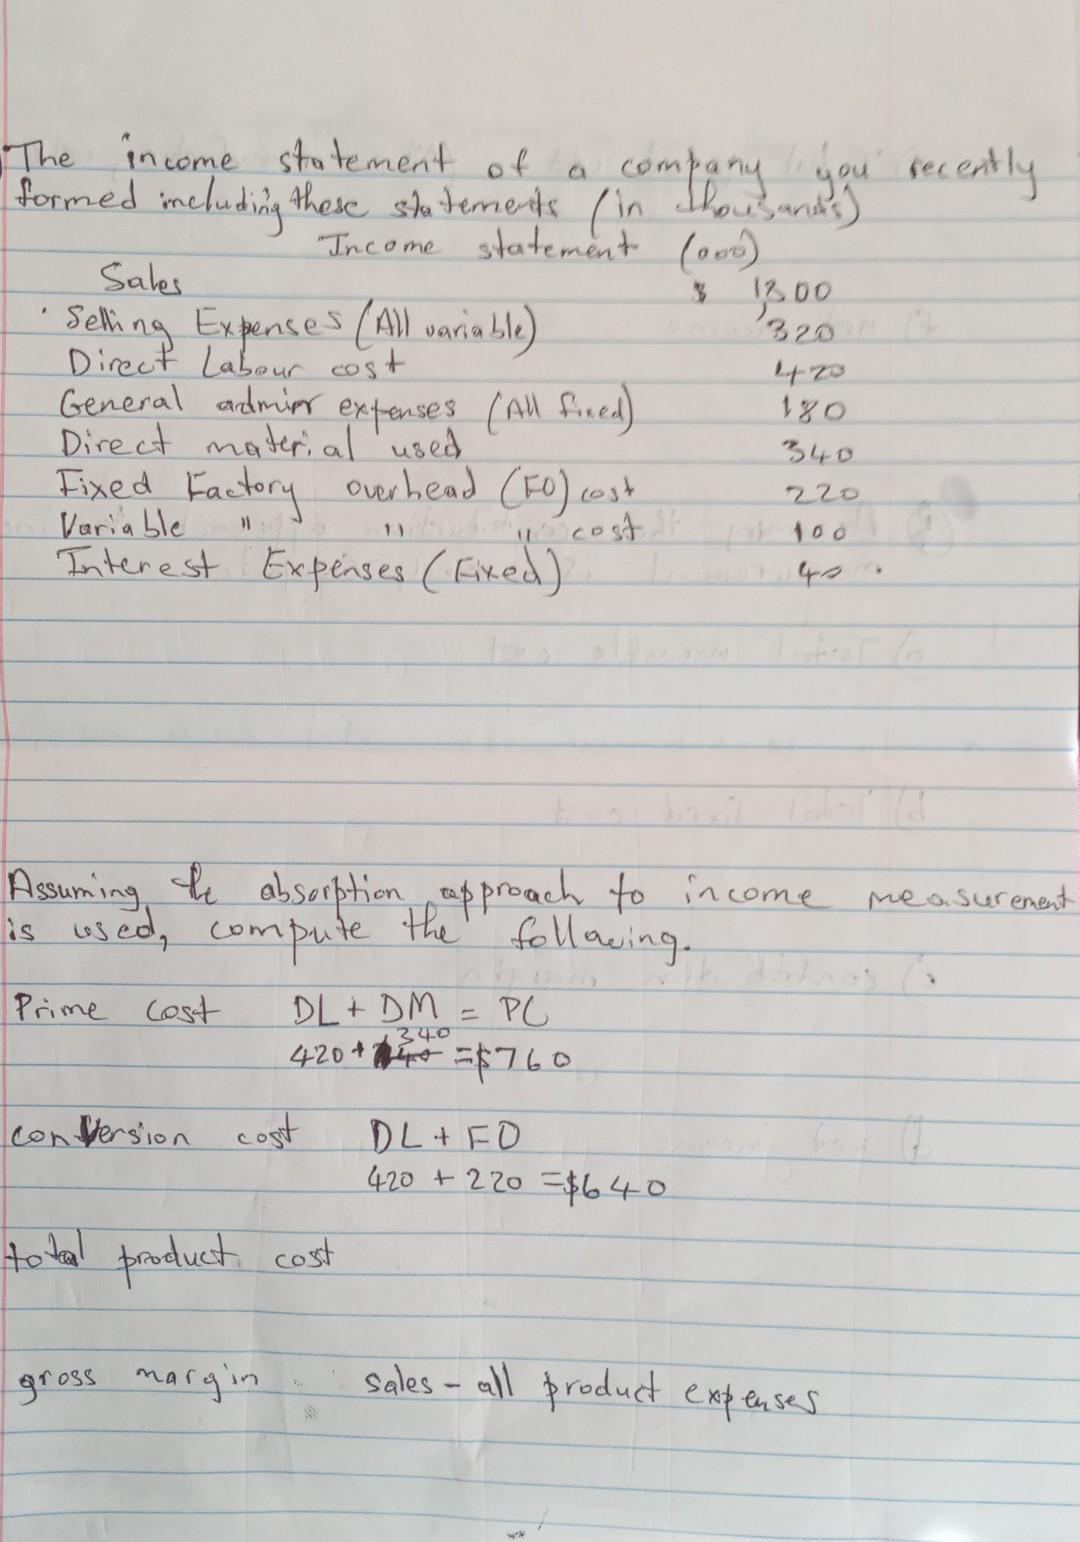 The income statement of a company you recently
formed including these statements (in thousands)
Income statement (000)
Sales $ 1,800
Selling Expenses (All variable) 320
Direct Labour cost 420
General admin expenses (All fixed) 180
Direct material used 340
Fixed Factory overhead (FO) cost 220
Variable " " " cost 100
Interest Expenses (Fixed) 40
Assuming the absorption approach to income measurement
is used, compute the following.
Prime cost DL + DM = PC
420 + 340 = $760
conversion cost DL + FO
420 + 220 = $640
total product cost
gross margin sales - all product expenses